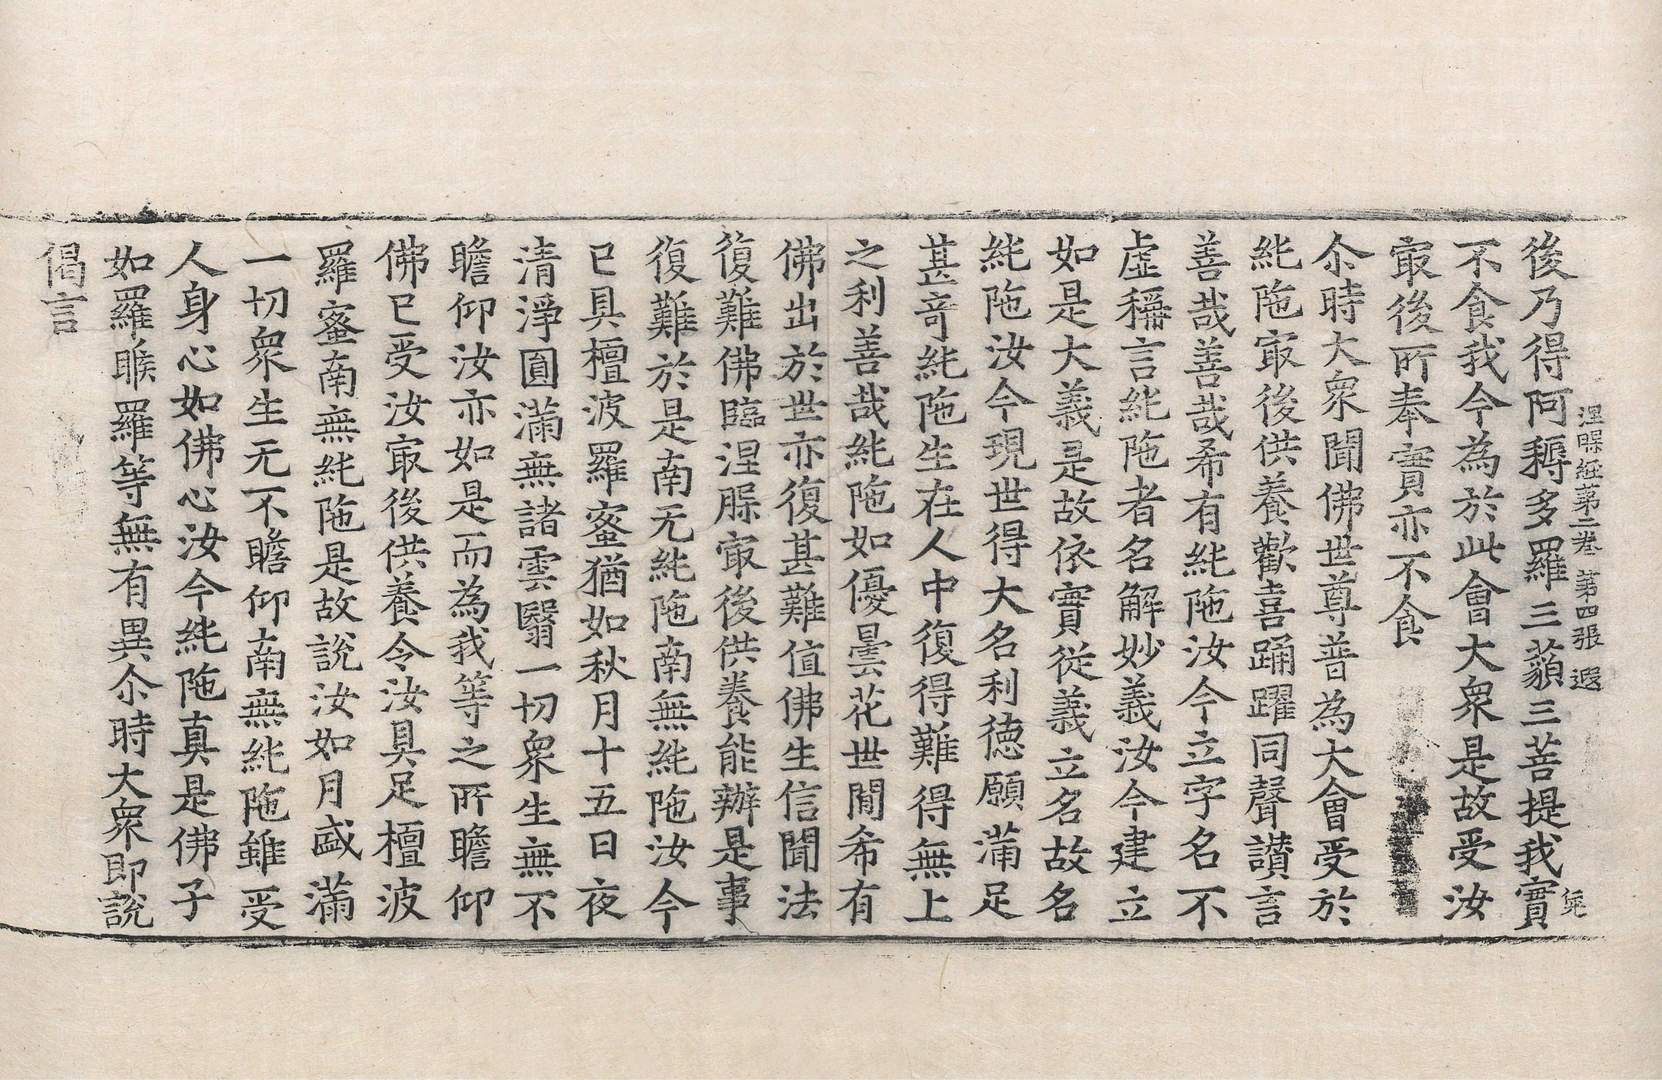 涅槃經第二卷 第四張 遐
後乃得阿耨多羅三藐三菩提我實
不食我今為於此會大衆是故受汝
㝡後所奉實亦不食
尒時大衆聞佛世尊普為大會受於
純陁㝡後供養歡喜踊躍同聲讃言
善哉善哉希有純陁汝今立字名不
虛稱言純陁者名解妙義汝今建立
如是大義是故依實從義立名故名
純陁汝今現世得大名利德願滿足
甚奇純陁生在人中復得難得無上
之利善哉純陁如優曇花世閒希有
佛出於世亦復甚難值佛生信聞法
復難佛臨涅槃㝡後供養能辦是事
復難於是南无純陁南無純陁汝今
已具檀波羅蜜猶如秋月十五日夜
清淨圓滿無諸雲翳一切衆生無不
瞻仰汝亦如是而為我等之所瞻仰
佛已受汝㝡後供養令汝具足檀波
羅蜜南無純陁是故說汝如月盛滿
一切衆生无不瞻仰南無純陁雖受
人身心如佛心汝今純陁真是佛子
如羅睺羅等無有異尒時大衆即說
偈言